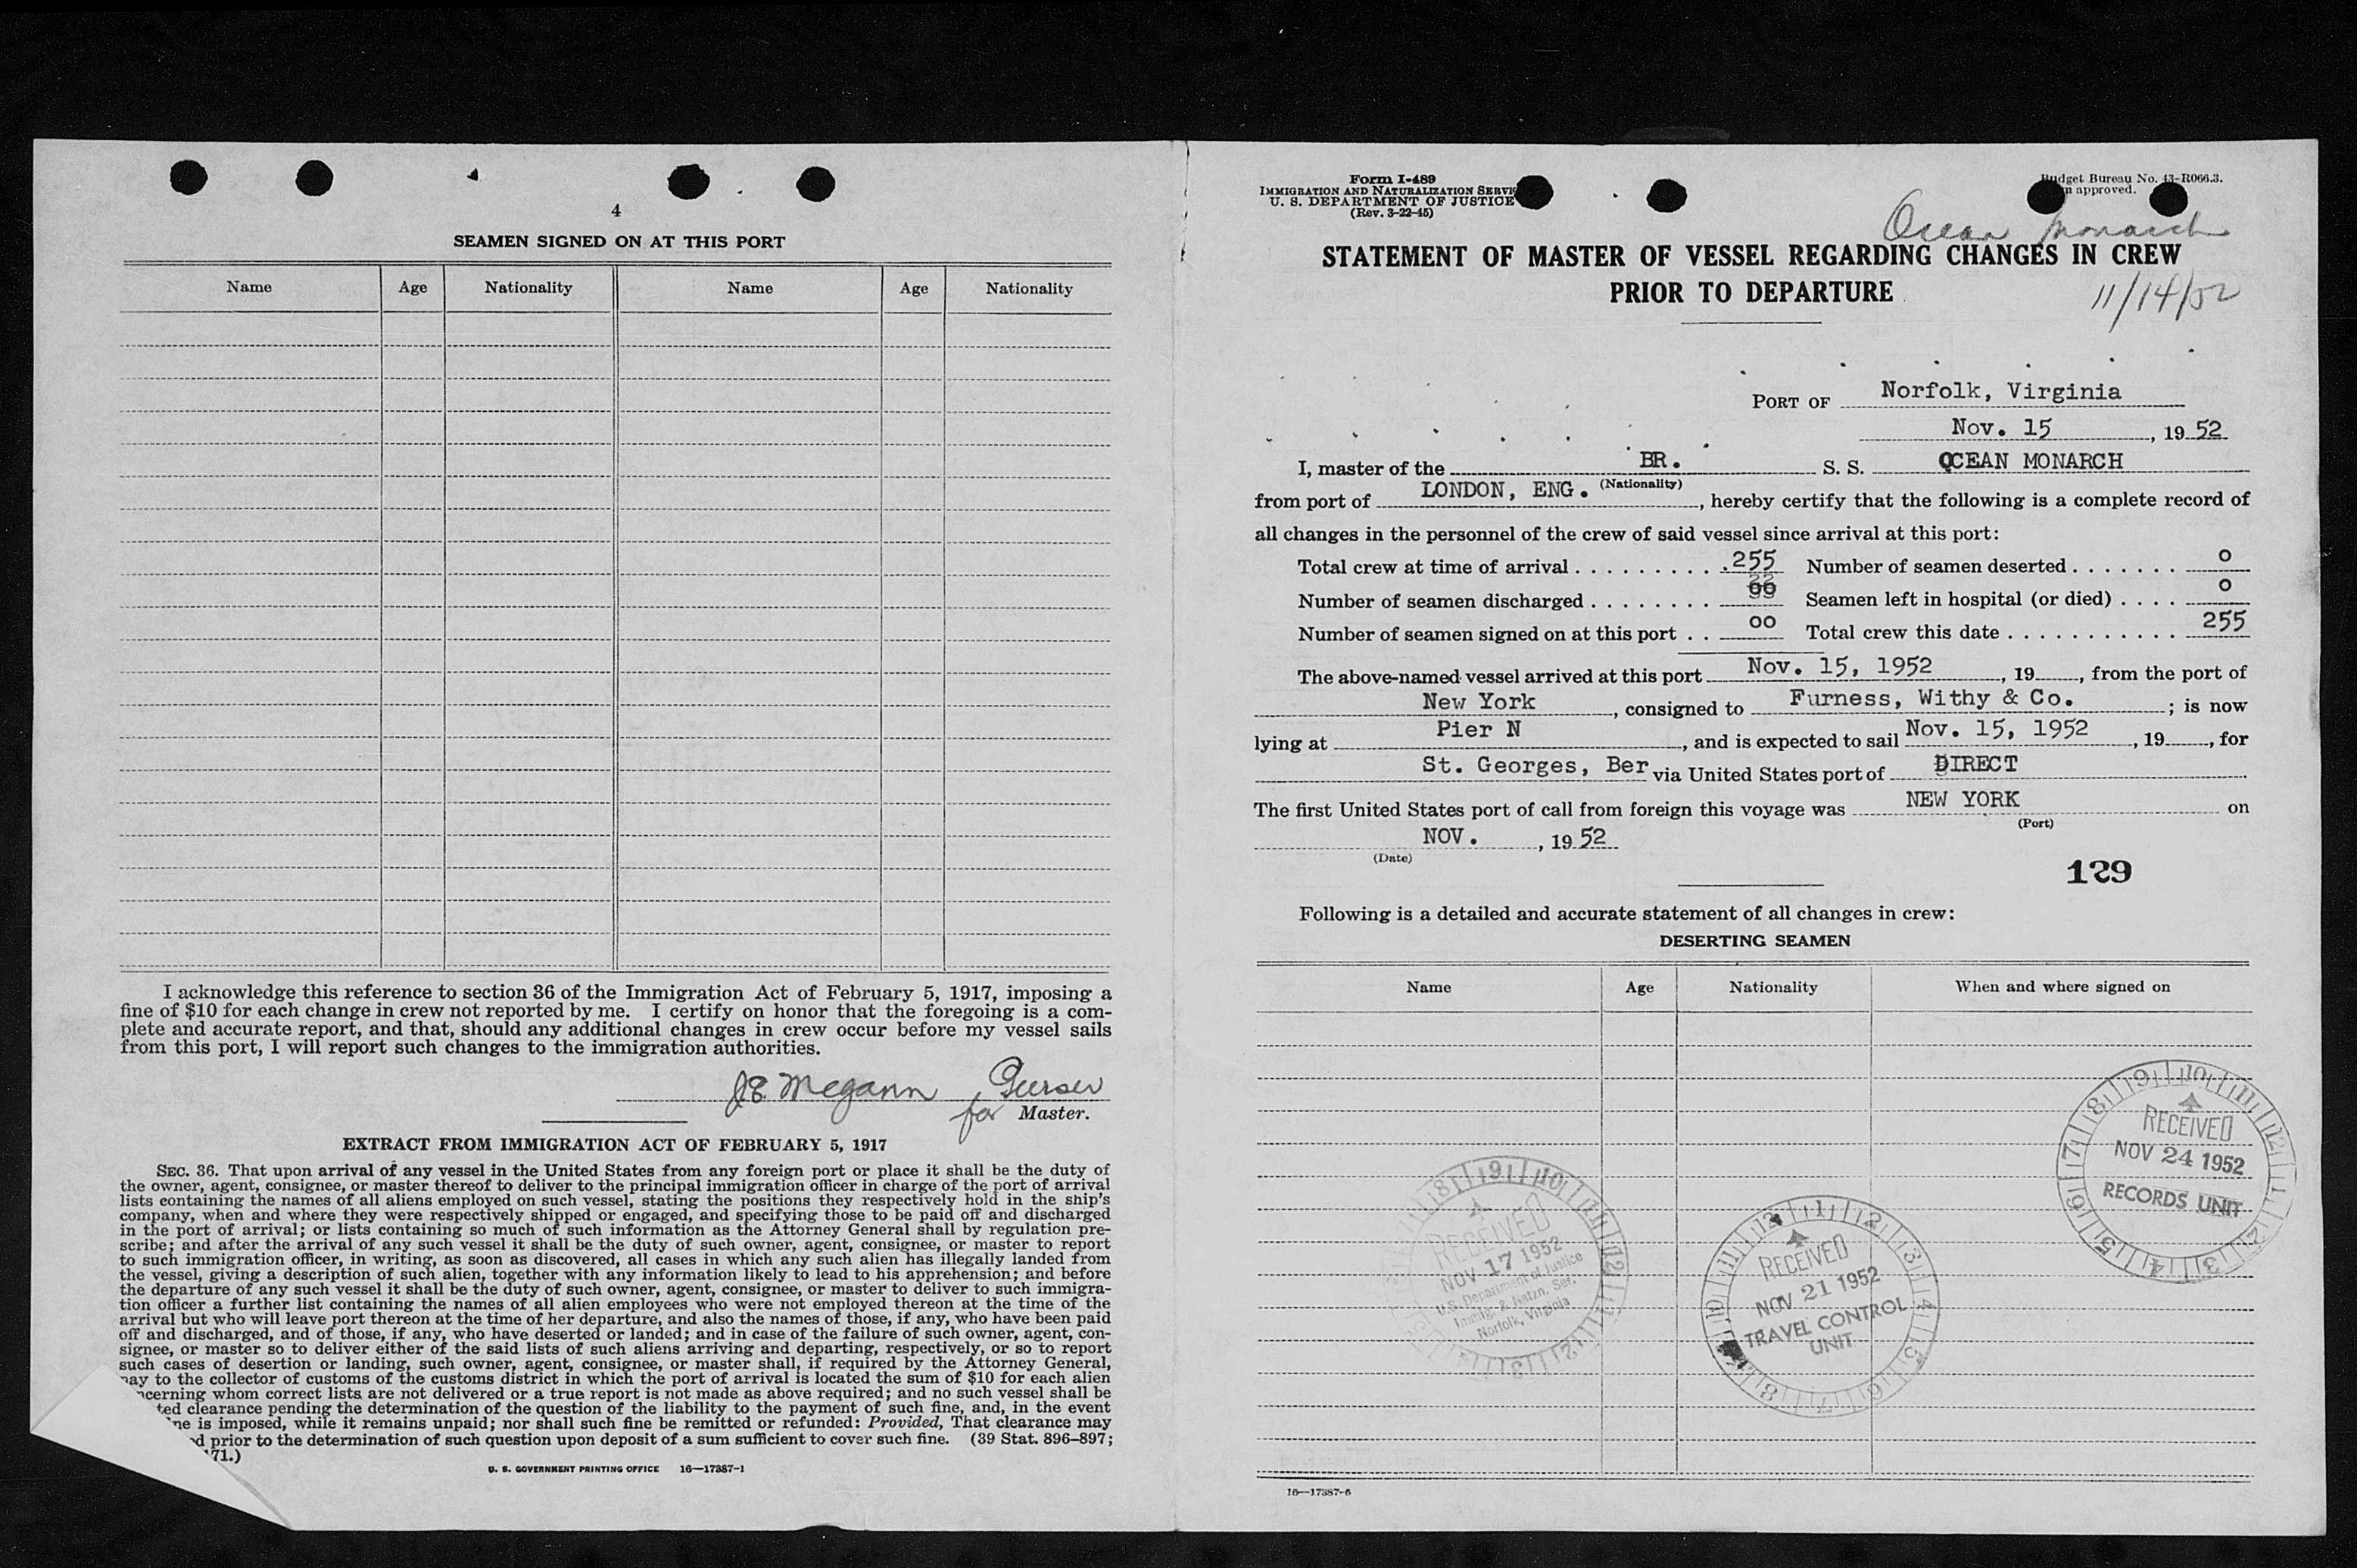 4
SEAMEN SIGNED ON AT THIS PORT
Name Age Nationality Name Age Nationality
I acknowledge this reference to section 36 of the Immigration Act of February 5, 1917, imposing a
fine of $10 for each change in crew not reported by me. I certify on honor that the foregoing is a com-
plete and accurate report, and that, should any additional changes in crew occur before my vessel sails
from this port, I will report such changes to the immigration authorities.
JE Megann Purser
for Master.
EXTRACT FROM IMMIGRATION ACT OF FEBRUARY 5, 1917
SEC. 36. That upon arrival of any vessel in the United States from any foreign port or place it shall be the duty of
the owner, agent, consignee, or master thereof to deliver to the principal immigration officer in charge of the port of arrival
lists containing the names of all aliens employed on such vessel, stating the positions they respectively hold in the ship's
company, when and where they were respectively shipped or engaged, and specifying those to be paid off and discharged
in the port of arrival; or lists containing so much of such information as the Attorney General shall by regulation pre-
scribe; and after the arrival of any such vessel it shall be the duty of such owner, agent, consignee, or master to report
to such immigration officer, in writing, as soon as discovered, all cases in which any such alien has illegally landed from
the vessel, giving a description of such alien, together with any information likely to lead to his apprehension; and before
the departure of any such vessel it shall be the duty of such owner, agent, consignee, or master to deliver to such immigra-
tion officer a further list containing the names of all alien employees who were not employed thereon at the time of the
arrival but who will leave port thereon at the time of her departure, and also the names of those, if any, who have been paid
off and discharged, and of those, if any, who have deserted or landed; and in case of the failure of such owner, agent, con-
signee, or master so to deliver either of the said lists of such aliens arriving and departing, respectively, or so to report
such cases of desertion or landing, such owner, agent, consignee, or master shall, if required by the Attorney General,
pay to the collector of customs of the customs district in which the port of arrival is located the sum of $10 for each alien
ncerning whom correct lists are not delivered or a true report is not made as above required; and no such vessel shall be
ted clearance pending the determination of the question of the liability to the payment of such fine, and, in the event
ne is imposed, while it remains unpaid; nor shall such fine be remitted or refunded: Provided, That clearance may
d prior to the determination of such question upon deposit of a sum sufficient to cover such fine. (39 Stat. 896–897;
171.)
U. S. GOVERNMENT PRINTING OFFICE 16—17387-1
Form I-489
IMMIGRATION AND NATURALIZATION SERVI
U. S. DEPARTMENT OF JUSTICE
(Rev. 3-22-45)
Budget Bureau No. 43-R066.3.
approved.
Ocean Monarch
STATEMENT OF MASTER OF VESSEL REGARDING CHANGES IN CREW
PRIOR TO DEPARTURE
11/14/52
PORT OF Norfolk, Virginia
Nov. 15, 19 52
I, master of the BR. S. S. OCEAN MONARCH
(Nationality)
from port of LONDON, ENG., hereby certify that the following is a complete record of
all changes in the personnel of the crew of said vessel since arrival at this port:
Total crew at time of arrival . . . . . . . . . . 255 Number of seamen deserted . . . . . . . 0
Number of seamen discharged . . . . . . . . Seamen left in hospital (or died) . . . . 0
Number of seamen signed on at this port . . 00 Total crew this date . . . . . . . . . . . 255
The above-named vessel arrived at this port Nov. 15, 1952, 19, from the port of
New York, consigned to Furness, Withy & Co. ; is now
lying at Pier N, and is expected to sail Nov. 15, 1952, 19, for
St. Georges, Ber via United States port of DIRECT
The first United States port of call from foreign this voyage was NEW YORK on
(Port)
NOV. , 19 52
(Date)
129
Following is a detailed and accurate statement of all changes in crew:
DESERTING SEAMEN
Name Age Nationality When and where signed on
RECEIVED
NOV 24 1952
RECORDS UNIT
RECEIVED
NOV 17 1952
U.S. Department of Justice
Immig. & Natzn. Ser.
Norfolk, Virginia
RECEIVED
NOV 21 1952
TRAVEL CONTROL
UNIT
16—17387-6